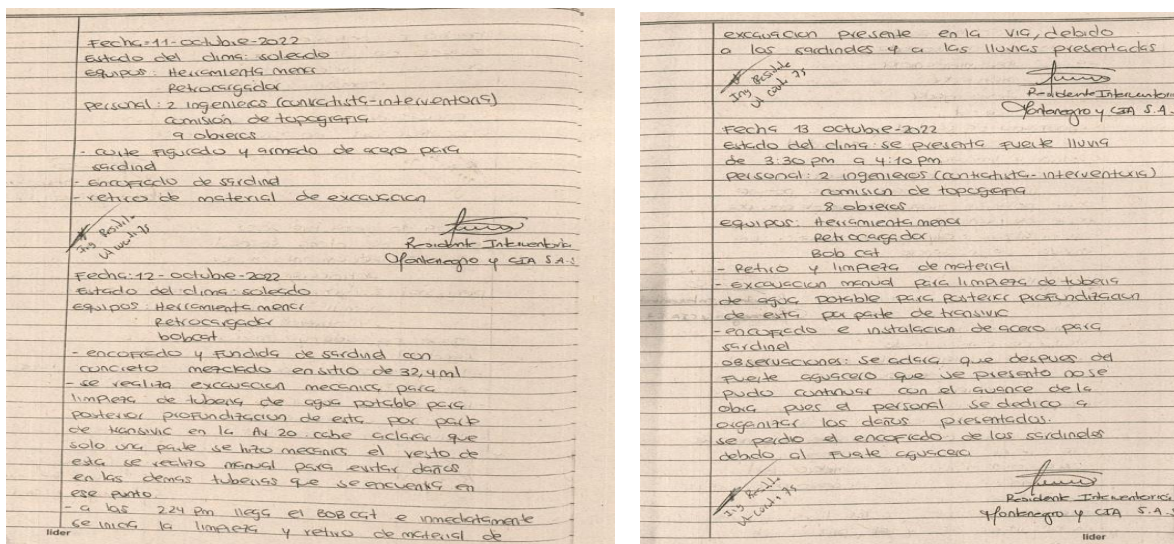 Fecha: 11-octubre-2022
Estado del clima: soleado
equipos: Herramienta menor
Retrocargador
personal: 2 ingenieros (contratista-interventoria)
comisión de topografia
9 obreros
- corte figurado y armado de acero para
sardinel
- encofrado de sardinel
- retiro de material de excavacion
Ing Residente
Residente Interventoria
Montenegro y CIA S.A.S
Fecha: 12-octubre-2022
Estado del clima: soleado
equipos: Herramienta menor
Retrocargador
bobcat
- encofrado y fundida de sardinel con
concreto mezclado en sitio de 32,4 ml
- se realiza excavacion mecanica para
limpieza de tuberia de agua potable para
posterior profundizacion de esta por parte
de transivic en la Av 20. cabe aclarar que
solo una parte se hizo mecanica el resto de
esta se realizo manual para evitar daños
en las demas tuberias que se encuentra en
ese punto.
- a las 224 pm llega el BOBcat e inmediatamente
se inicia la limpieza y retiro de material de
lider
excavacion presente en la via, debido
a los sardineles y a las lluvias presentadas
Ing Residente
Residente Interventoria
Montenegro y CIA S.A.S
Fecha 13 octubre-2022
Estado del clima: se presenta fuerte lluvia
de 3:30 pm a 4:10 pm
personal: 2 ingenieros (contratista-interventoria)
comision de topografia
8 obreros
equipos: Herramienta menor
Retrocargador
Bob cat
- Retiro y limpieza de material
- excavacion manual para limpieza de tuberia
de agua potable para posterior profundizacion
de esta por parte de transivic
- encofrado e instalacion de acero para
sardinel
observaciones: se aclara que despues del
fuerte aguacero que se presento no se
pudo continuar con el avance de la
obra pues el personal se dedico a
organizar los daños presentados.
se perdio el encofrado de los sardineles
debido al fuerte aguacero
Ing Residente
Residente Interventoria
Montenegro y CIA S.A.S
lider